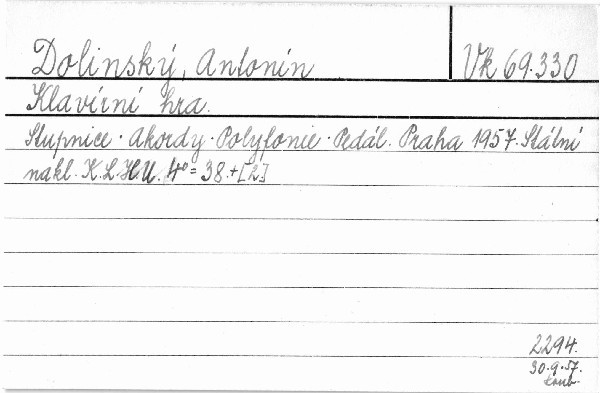 Dolinský, Antonín
Vk 69.330
Klavírní hra.
Stupnice · Akordy · Polyfonie · Pedál. Praha 1957. Státní
nakl. K.L.H.U. 4° = 38.+[2]
2294.
30.9.57.